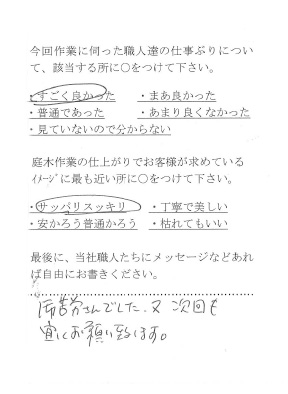 今回作業に伺った職人達の仕事ぶりについ
て、該当する所に○をつけて下さい。
・すごく良かった ・まあ良かった
・普通であった ・あまり良くなかった
・見ていないので分からない
庭木作業の仕上がりでお客様が求めている
ｲﾒｰｼﾞに最も近い所に○をつけて下さい。
・サッパリスッキリ ・丁寧で美しい
・安かろう普通かろう ・枯れてもいい
最後に、当社職人たちにメッセージなどあれ
ば自由にお書きください。
労さんでした、又次回も
宜しくお願い致します。